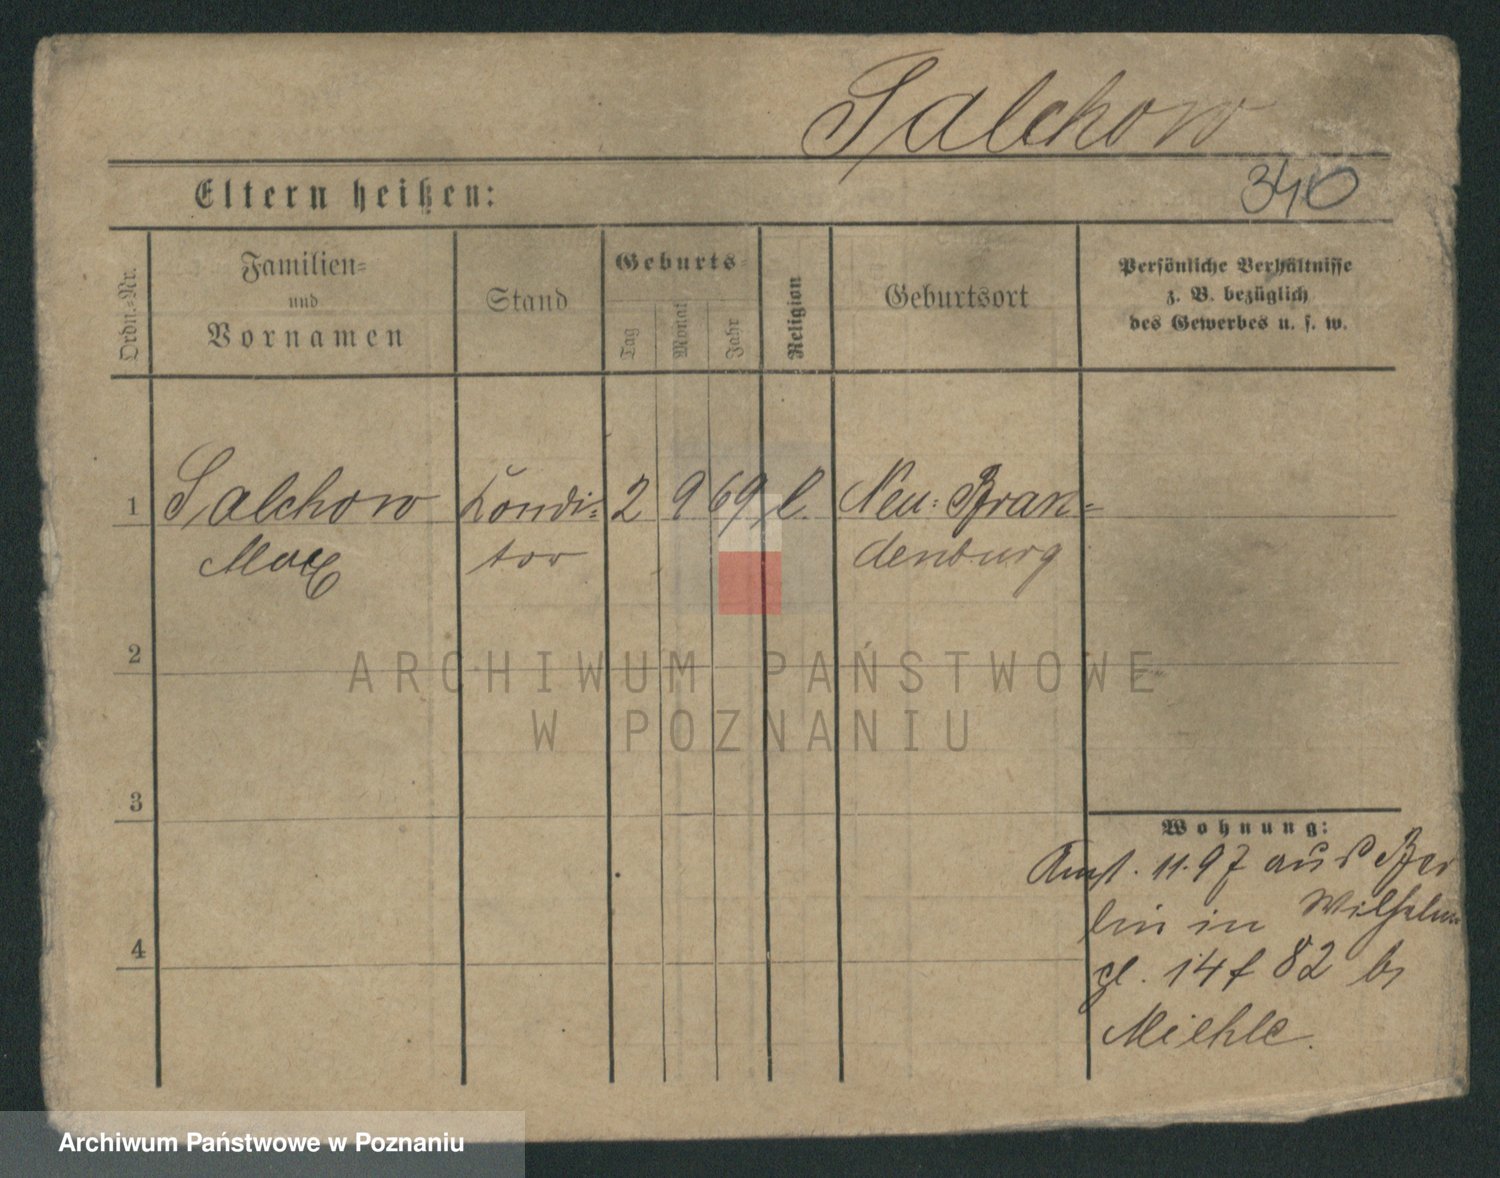 Salchow
Eltern heißen:
340
Ordn.-Nr.
Familien-
und
Vornamen
Stand
Geburts-
Tag
Monat
Jahr
Religion
Geburtsort
Persönliche Verhältnisse
z. B. bezüglich
des Gewerbes u. s. w.
1 Salchow Kondi- 2 9 69 l. Neu-Bran-
Max tor denburg
2
ARCHIWUM PAŃSTWOWE
W POZNANIU
3
Wohnung:
11.97 aus Ber
lin in Wilhelm
pl. 14 82 b
Miehle.
4
Archiwum Państwowe w Poznaniu